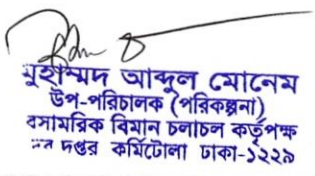 মুহাম্মদ আব্দুল মোনেম
উপ-পরিচালক (পরিকল্পনা)
বসামরিক বিমান চলাচল কর্তৃপক্ষ
দপ্তর কর্মিটোলা ঢাকা-১২২৯